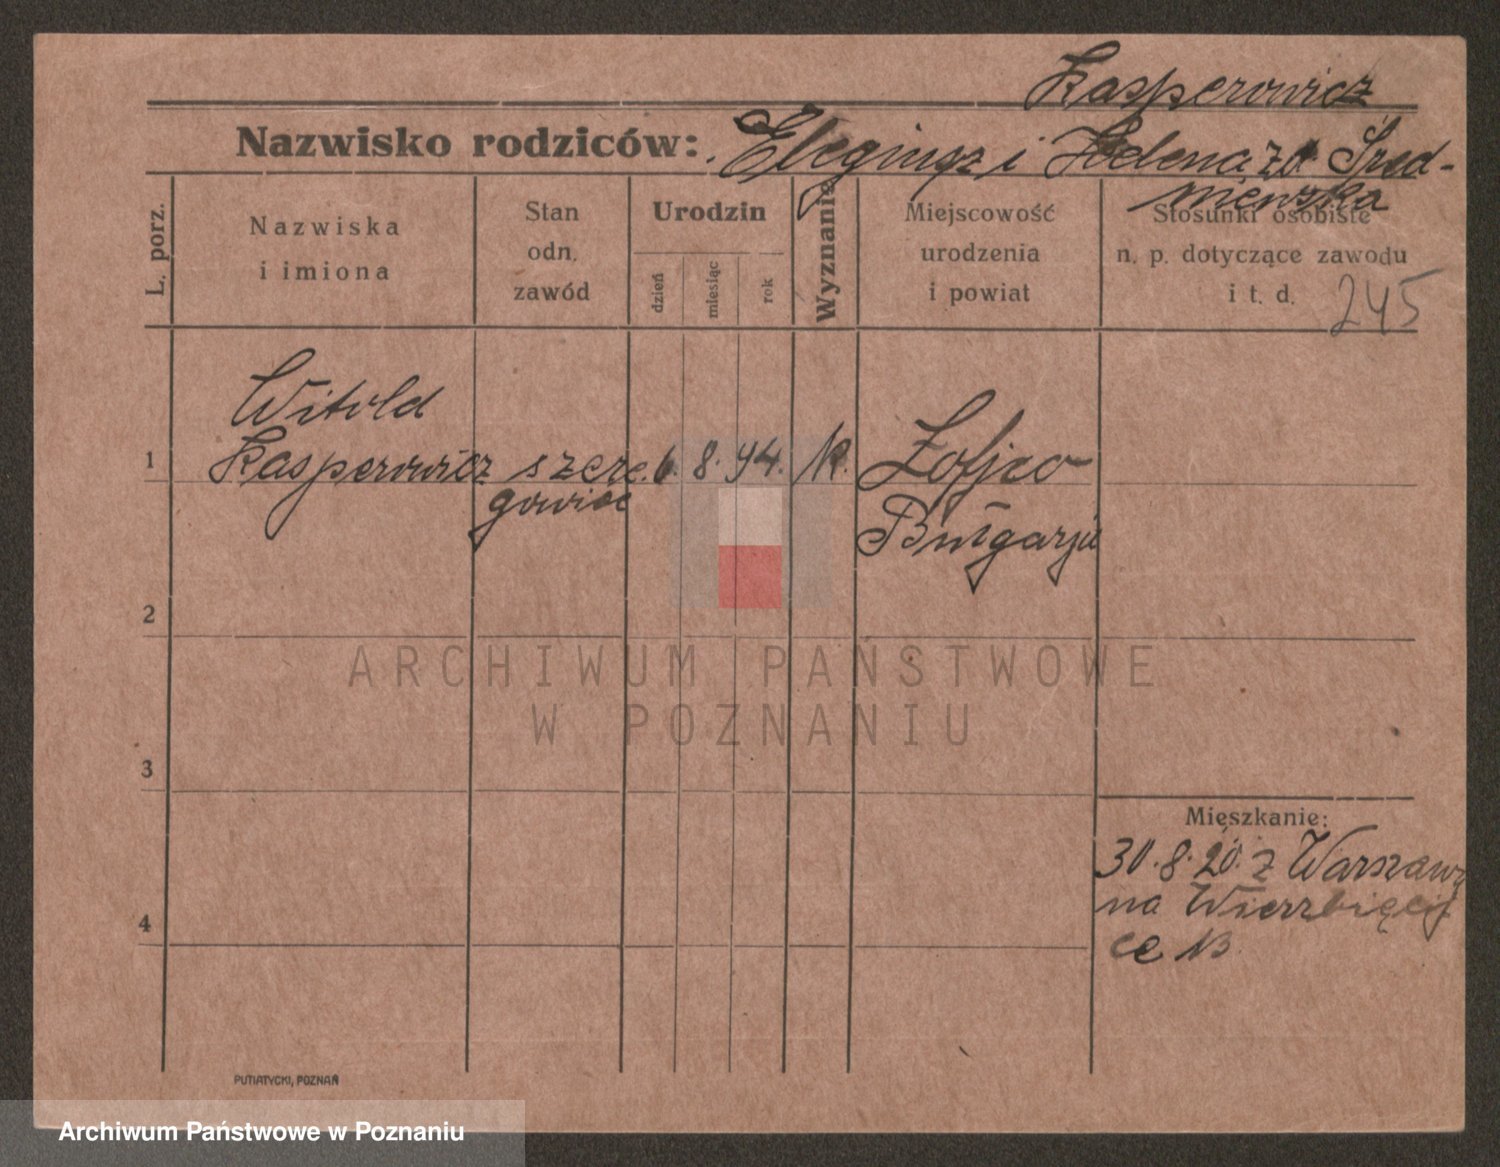 Kasperowicz
Nazwisko rodziców: i Helena zd. Śred-
niewska
L. porz.
Nazwiska
i imiona
Stan
odn.
zawód
Urodzin
dzień
miesiąc
rok
Wyznanie
Miejscowość
urodzenia
i powiat
Stosunki osobiste
n. p. dotyczące zawodu
i t. d.
245
1
Witold
Kasperowicz
szere-
gowiec
6. 8. 94.
K.
Zofja
Bułgarja
2
ARCHIWUM PAŃSTWOWE
W POZNANIU
3
Mieszkanie:
30.8.20. z Warszawy
na Wierzbięci
ce 13.
4
PUTIATYCKI, POZNAŃ
Archiwum Państwowe w Poznaniu